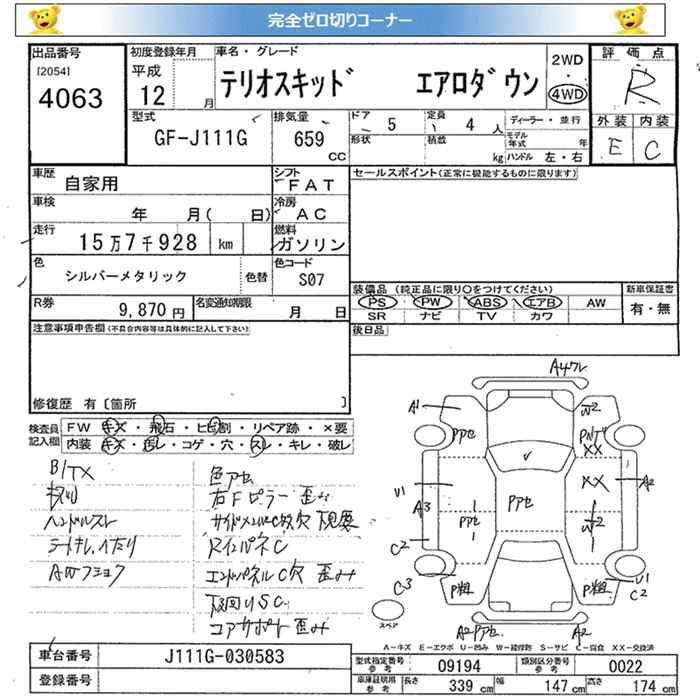 完全ゼロ切りコーナー
出品番号
[2054]
4063
初度登録年月
平成
12 月
車名・グレード
テリオスキッド エアロダウン
2WD
・
4WD
評価点
R
型式
GF-J111G
排気量
659
CC
ドア
5
定員
4 人
形状
積載
kg
ディーラー・並行
モデル年式 年
ハンドル 左・右
外装 内装
E C
車歴
自家用
シフト
FAT
車検
年 月( 日)
冷房
AC
走行
15万7千928 km
燃料
ガソリン
色
シルバーメタリック
色替
色コード
S07
R券
9,870 円
名変通知期限
月 日
セールスポイント(正常に機能するものに限ります)
装備品 (純正品に限り○をつけてください)
PS PW ABS エアB AW
SR ナビ TV カワ
新車保証書
有・無
後日品
注意事項申告欄(不具合内容等は具体的に記入して下さい)
修復歴 有〔箇所 〕
検査員記入欄
FW キズ・飛石・ヒビ割・リペア跡・×要
内装 キズ・汚レ・コゲ・穴・スレ・キレ・破レ
B/TX
ハンドルスレ
AWフショク
色アセ
右Fピラー 歪み
サイドメンバーC数穴 下見要
RインパネC
エンドパネルC穴 歪み
下回りSC
コアサポート歪み
A4ワレ
A1
Pアセ
W2
XX
XX
U1
A3
Pアセ
Pアセ
W2
A2
C2
C3
P粗
P粗
U1
C2
スペア
A2Pアセ
A2
A-キズ E-エクボ U-凹み W-補修跡 S-サビ C-腐食 XX-交換済
車台番号
J111G-030583
登録番号
型式指定番号
参考
09194
類別区分番号
参考
0022
車庫証明用
参考
長さ 339 cm
幅 147 cm
高さ 174 cm